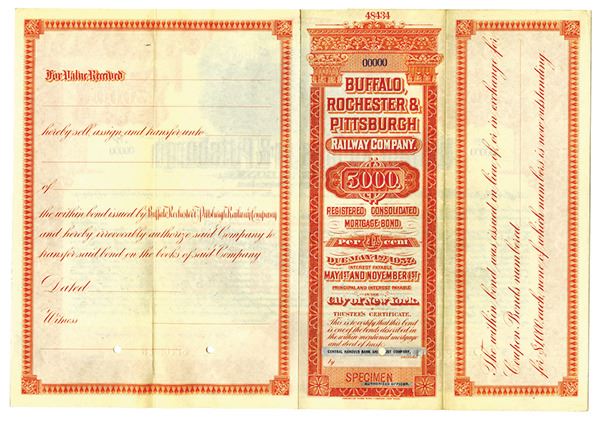 For Value Received
hereby sell, assign, and transfer unto
of
the within bond issued by Buffalo, Rochester & Pittsburgh Railway Company
and hereby irrevocably authorize said Company to
transfer said bond on the books of said Company.
Dated
Witness
48434
00000
BUFFALO,
ROCHESTER &
PITTSBURGH
RAILWAY COMPANY.
5000
REGISTERED CONSOLIDATED
MORTGAGE BOND,
Per 4½ cent
DUE MAY 1ST 1957.
INTEREST PAYABLE
MAY 1ST AND NOVEMBER 1ST
PRINCIPAL AND INTEREST PAYABLE
IN THE
City of New York.
TRUSTEE'S CERTIFICATE.
This is to certify that this bond
is one of the bonds described in
the within mentioned mortgage
and deed of trust.
CENTRAL HANOVER BANK AND UST COMPANY,
by
SPECIMEN
AUTHORIZED OFFICER.
The within bond was issued in lieu of or in exchange for
Coupon Bonds numbered
for $1,000 each, none of which numbers is now outstanding